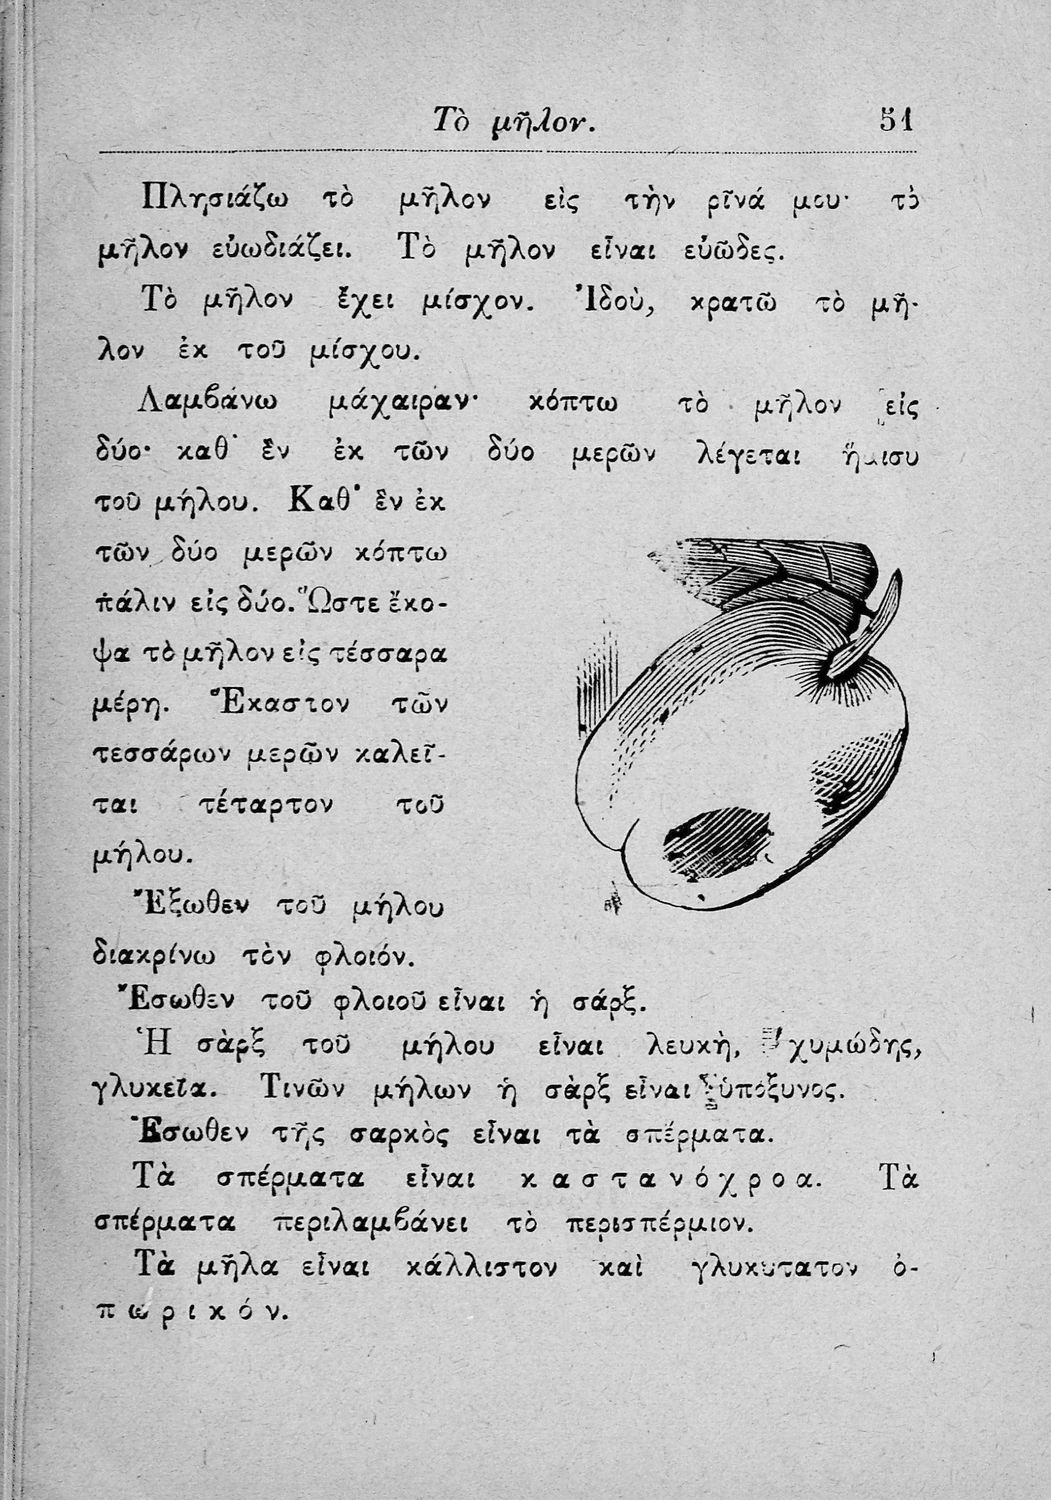 Τὸ μῆλον. 51
Πλησιάζω τὸ μῆλον εἰς τὴν ρῖνά μου· τὸ
μῆλον εὐωδιάζει. Τὸ μῆλον εἶναι εὐῶδες.
Τὸ μῆλον ἔχει μίσχον. Ἰδοὺ, κρατῶ τὸ μῆ-
λον ἐκ τοῦ μίσχου.
Λαμβάνω μάχαιραν· κόπτω τὸ μῆλον εἰς
δύο· καθ' ἓν ἐκ τῶν δύο μερῶν λέγεται ἥμισυ
τοῦ μήλου. Καθ' ἓν ἐκ
τῶν δύο μερῶν κόπτω
πάλιν εἰς δύο. Ὥστε ἔκο-
ψα τὸ μῆλον εἰς τέσσαρα
μέρη. Ἕκαστον τῶν
τεσσάρων μερῶν καλεῖ-
ται τέταρτον τοῦ
μήλου.
Ἔξωθεν τοῦ μήλου
διακρίνω τὸν φλοιόν.
Ἔσωθεν τοῦ φλοιοῦ εἶναι ἡ σάρξ.
Ἡ σὰρξ τοῦ μήλου εἶναι λευκὴ, χυμώδης,
γλυκεῖα. Τινῶν μήλων ἡ σὰρξ εἶναι ὑπόξυνος.
Ἔσωθεν τῆς σαρκὸς εἶναι τὰ σπέρματα.
Τὰ σπέρματα εἶναι καστανόχροα. Τὰ
σπέρματα περιλαμβάνει τὸ περισπέρμιον.
Τὰ μῆλα εἶναι κάλλιστον καὶ γλυκυτατον ὀ-
πωρικόν.